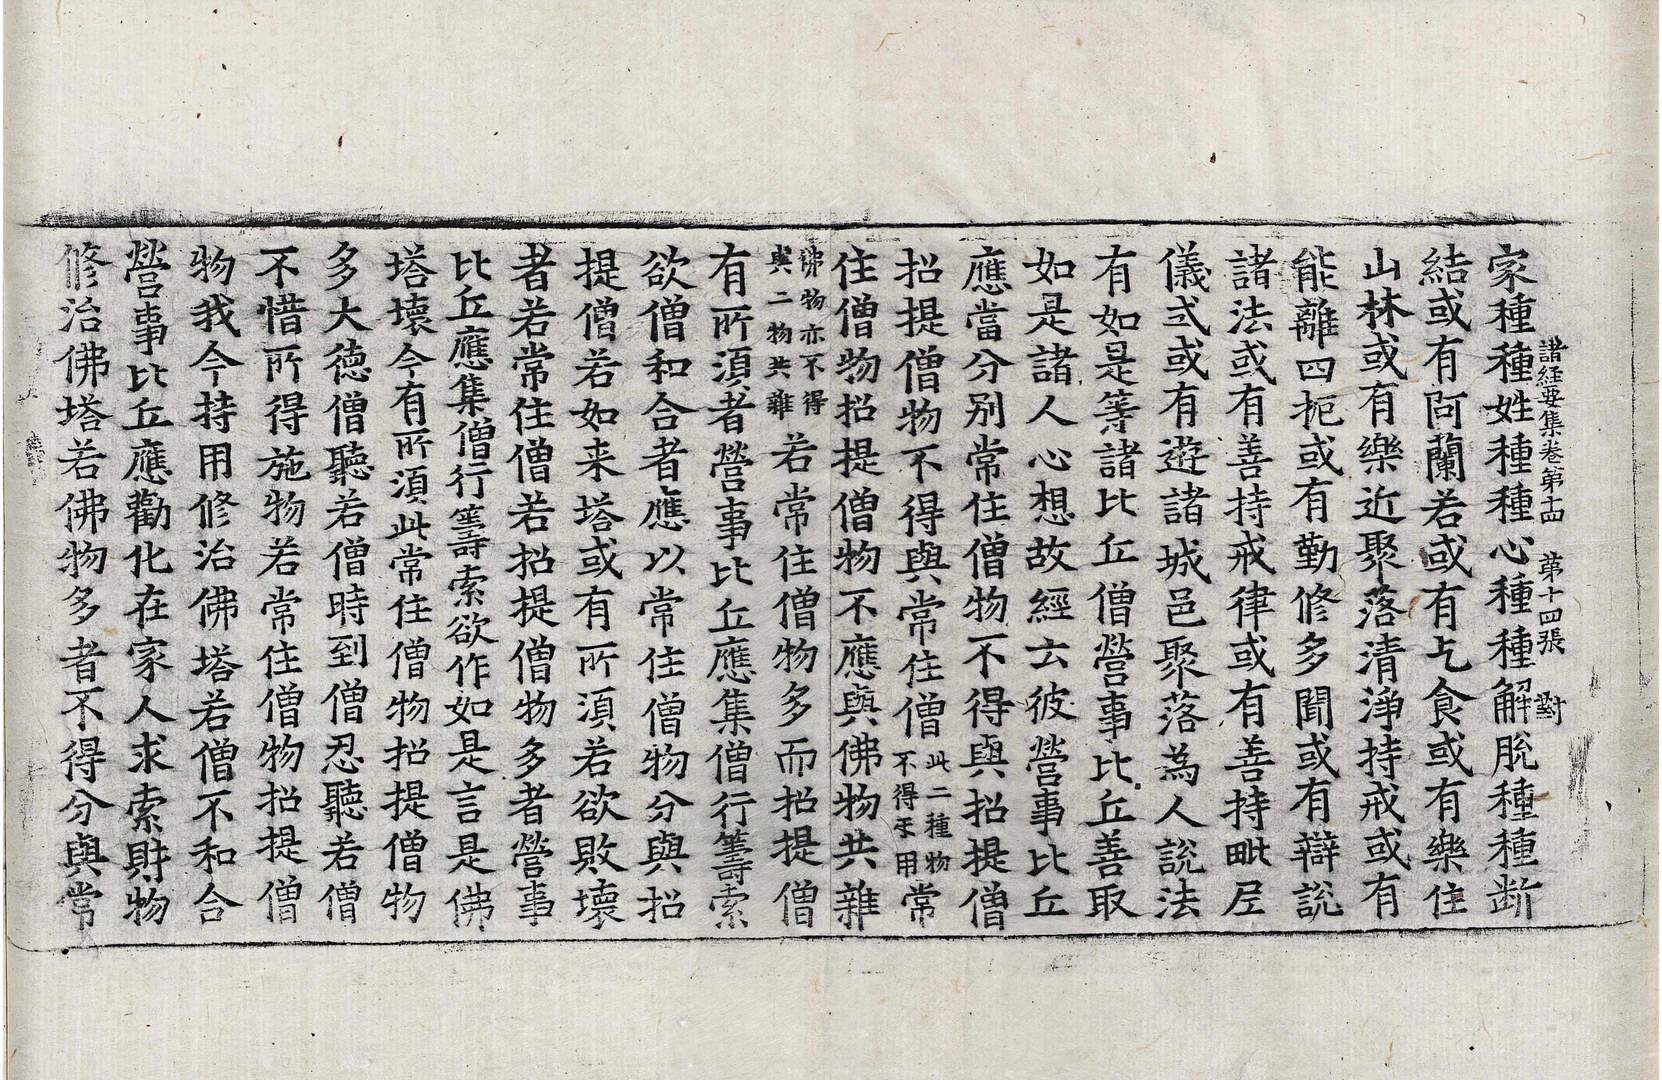 諸經要集卷第十四　第十四張　對
家種種姓種種心種種解脫種種断
結或有阿蘭若或有乞食或有樂住
山林或有樂近聚落清淨持戒或有
能離四扼或有勤修多聞或有辯說
諸法或有善持戒律或有善持毗尼
儀式或有遊諸城邑聚落為人說法
有如是等諸比丘僧營事比丘善取
如是諸人心想故經云彼營事比丘
應當分别常住僧物不得與招提僧
招提僧物不得與常住僧此二種物不得互用常
住僧物招提僧物不應與佛物共雜
佛物亦不得與二物共雜若常住僧物多而招提僧
有所湏者營事比丘應集僧行籌索
欲僧和合者應以常住僧物分與招
提僧若如来塔或有所湏若欲敗壞
者若常住僧若招提僧物多者營事
比丘應集僧行籌索欲作如是言是佛
塔壞今有所湏此常住僧物招提僧物
多大德僧聽若僧時到僧忍聽若僧
不惜所得施物若常住僧物招提僧
物我今持用修治佛塔若僧不和合
營事比丘應勸化在家人求索財物
修治佛塔若佛物多者不得分與常